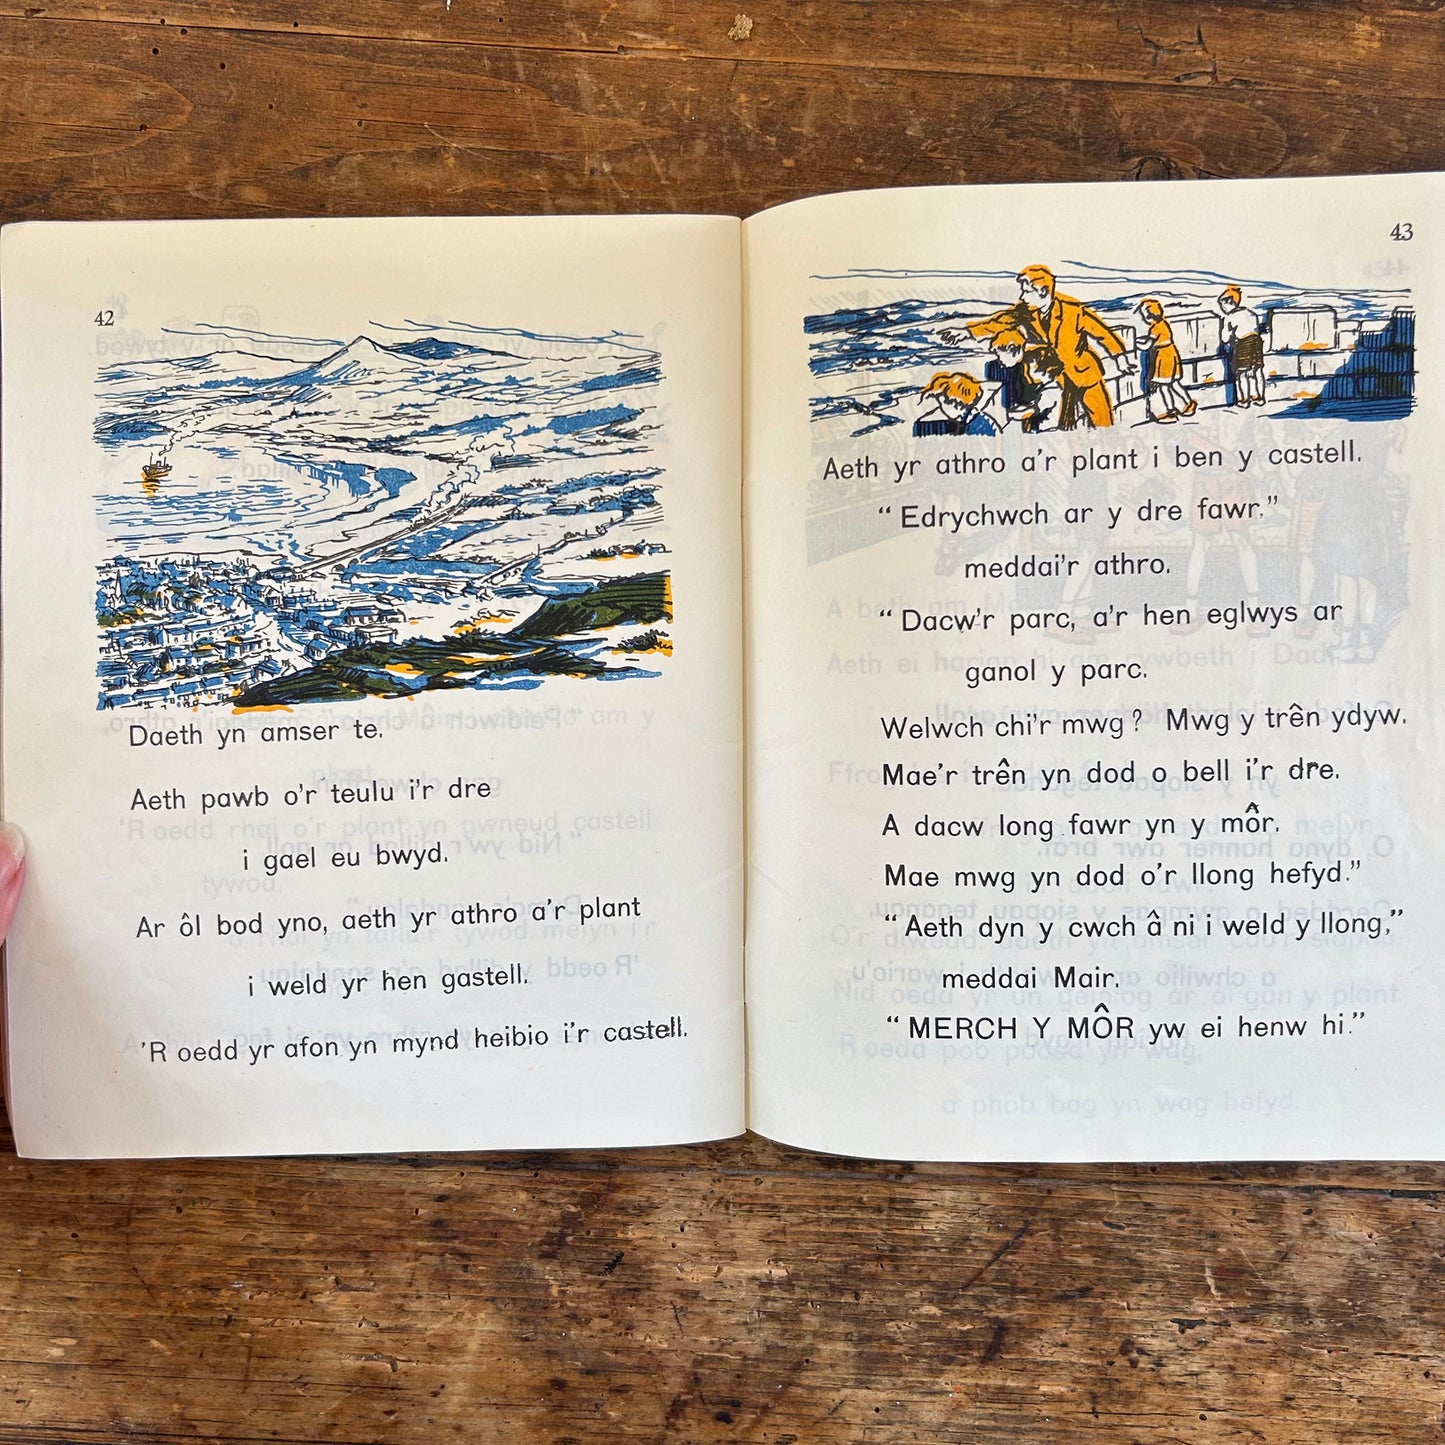 42
Daeth yn amser te.
Aeth pawb o'r teulu i'r dre
i gael eu bwyd.
Ar ôl bod yno, aeth yr athro a'r plant
i weld yr hen gastell.
'R oedd yr afon yn mynd heibio i'r castell.
43
Aeth yr athro a'r plant i ben y castell.
“Edrychwch ar y dre fawr,”
meddai'r athro.
“Dacw'r parc, a'r hen eglwys ar
ganol y parc.
Welwch chi'r mwg? Mwg y trên ydyw.
Mae'r trên yn dod o bell i'r dre.
A dacw long fawr yn y môr.
Mae mwg yn dod o'r llong hefyd.”
“Aeth dyn y cwch â ni i weld y llong,”
meddai Mair.
“MERCH Y MÔR yw ei henw hi.”